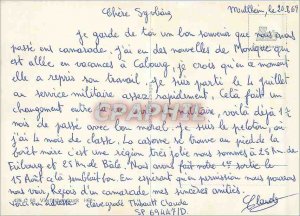 Mullheim, le 20.8.69
Chère Sylviane,
Je garde de toi un bon souvenir que nous avons
passé en camarade, j'ai eu des nouvelles de Monique qui
est allée en vacances à Cabourg, je crois qu'en ce moment
elle a repris son travail. Je suis parti le 4 juillet
au service militaire assez rapidement. Celà fait un
changement entre la vie et l'armée, voilà déjà 1½
mois de passé avec bon moral. Je suis le peloton, où
j'ai 4 mois de classe. La caserne se trouve au pied de la
forêt noire c'est une région très jolie nous sommes à 25 Km de
Fribourg et 25 Km de Bâle. Nous avons fait notre 1er
15 Août celà semblait bon. En espérant qu'une permission nous pourrons
nous voir, Reçois d'un camarade mes sincères amitiés.
Claude
Elève gradé Thibault Claude
SP 69447/D
PRPhoto